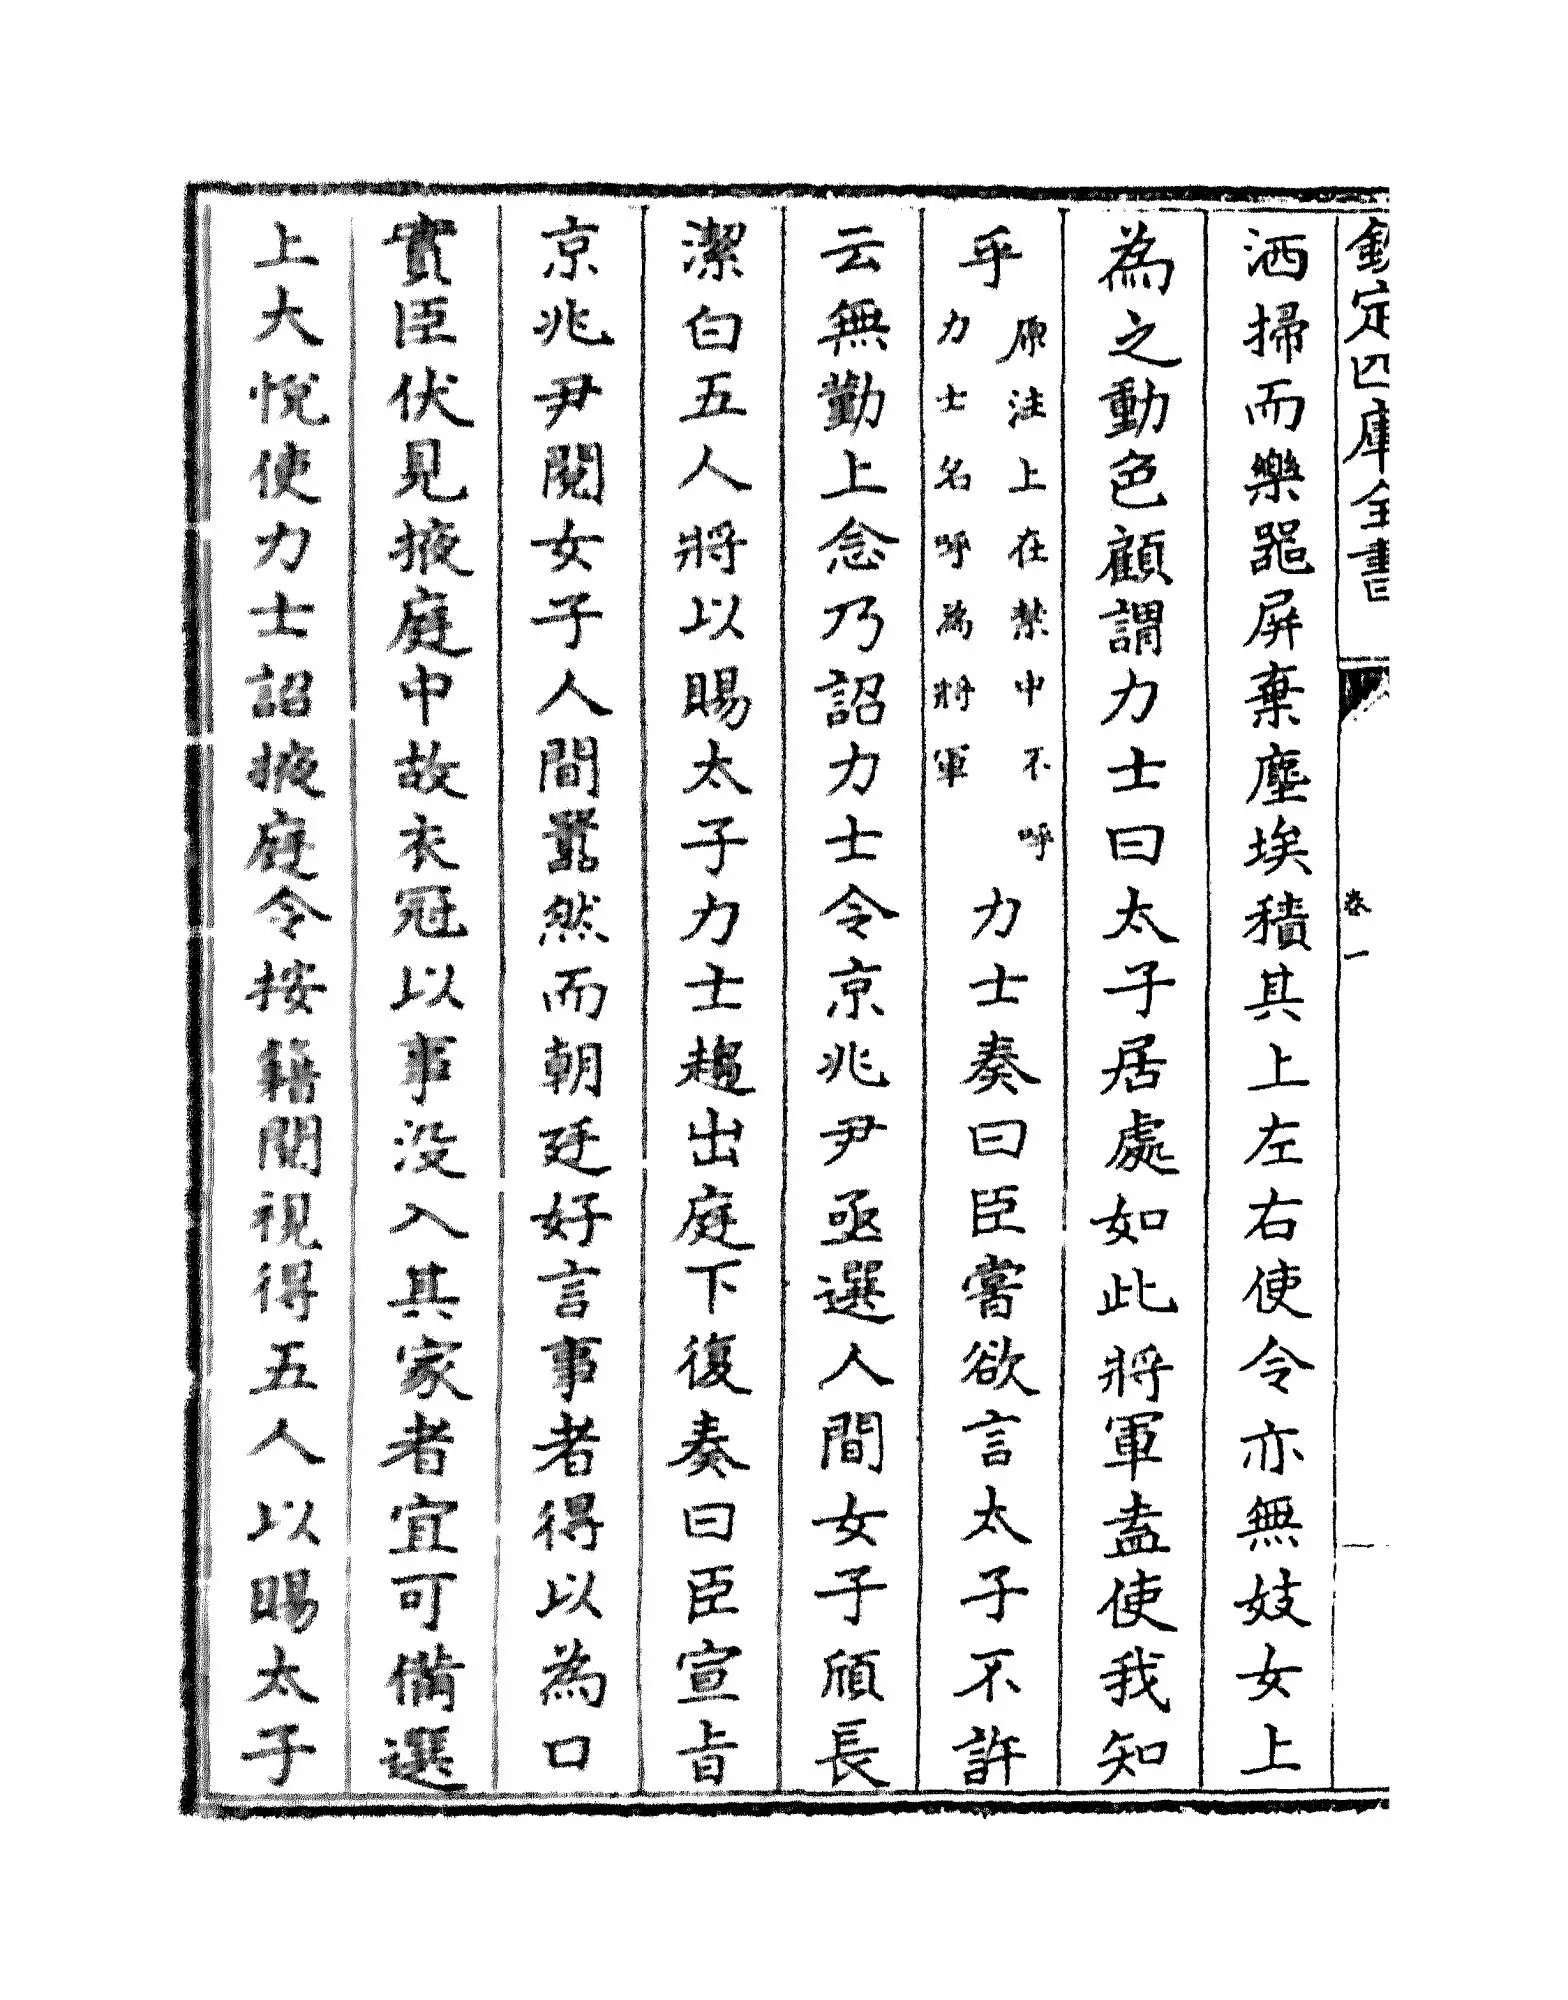 欽定四庫全書
卷一
洒掃而樂噐屏棄塵埃積其上左右使令亦無妓女上
為之動色顧謂力士曰太子居處如此將軍盍使我知
乎
原注上在禁中不呼
力士名呼為將軍
力士奏曰臣嘗欲言太子不許
云無勤上念乃詔力士令京兆尹亟選人間女子頎長
潔白五人將以賜太子力士趨出庭下復奏曰臣宣旨
京兆尹閱女子人間囂然而朝廷好言事者得以為口
實臣伏見掖庭中故衣冠以事没入其家者宜可備選
上大悅使力士詔掖庭令按籍閱視得五人以賜太子